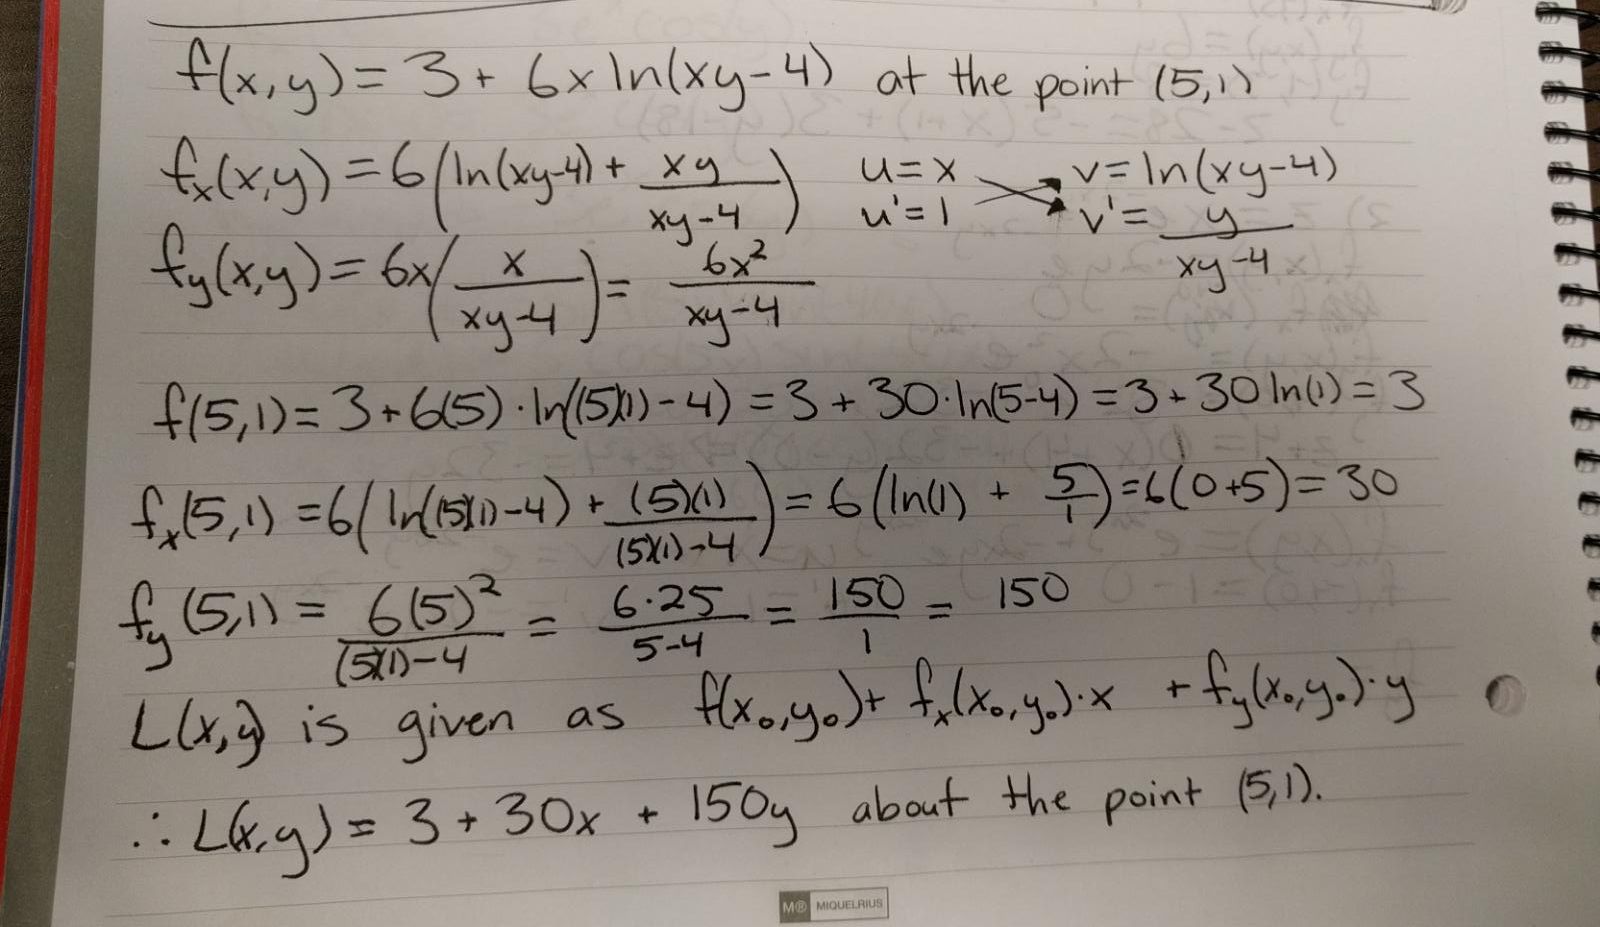 f(x,y) = 3 + 6x ln(xy-4) at the point (5,1)
f_x(x,y) = 6(ln(xy-4) + xy/(xy-4)) u=x v=ln(xy-4)
u'=1 v'= y/(xy-4)
f_y(x,y) = 6x(x/(xy-4)) = 6x²/(xy-4)
f(5,1) = 3+6(5)·ln((5)(1)-4) = 3 + 30·ln(5-4) = 3 + 30 ln(1) = 3
f_x(5,1) = 6(ln((5)(1)-4) + (5)(1)/((5)(1)-4)) = 6(ln(1) + 5/1) = 6(0+5) = 30
f_y(5,1) = 6(5)²/((5)(1)-4) = 6·25/(5-4) = 150/1 = 150
L(x,y) is given as f(x₀,y₀) + f_x(x₀,y₀)·x + f_y(x₀,y₀)·y
∴ L(x,y) = 3 + 30x + 150y about the point (5,1).
M® MIQUELRIUS